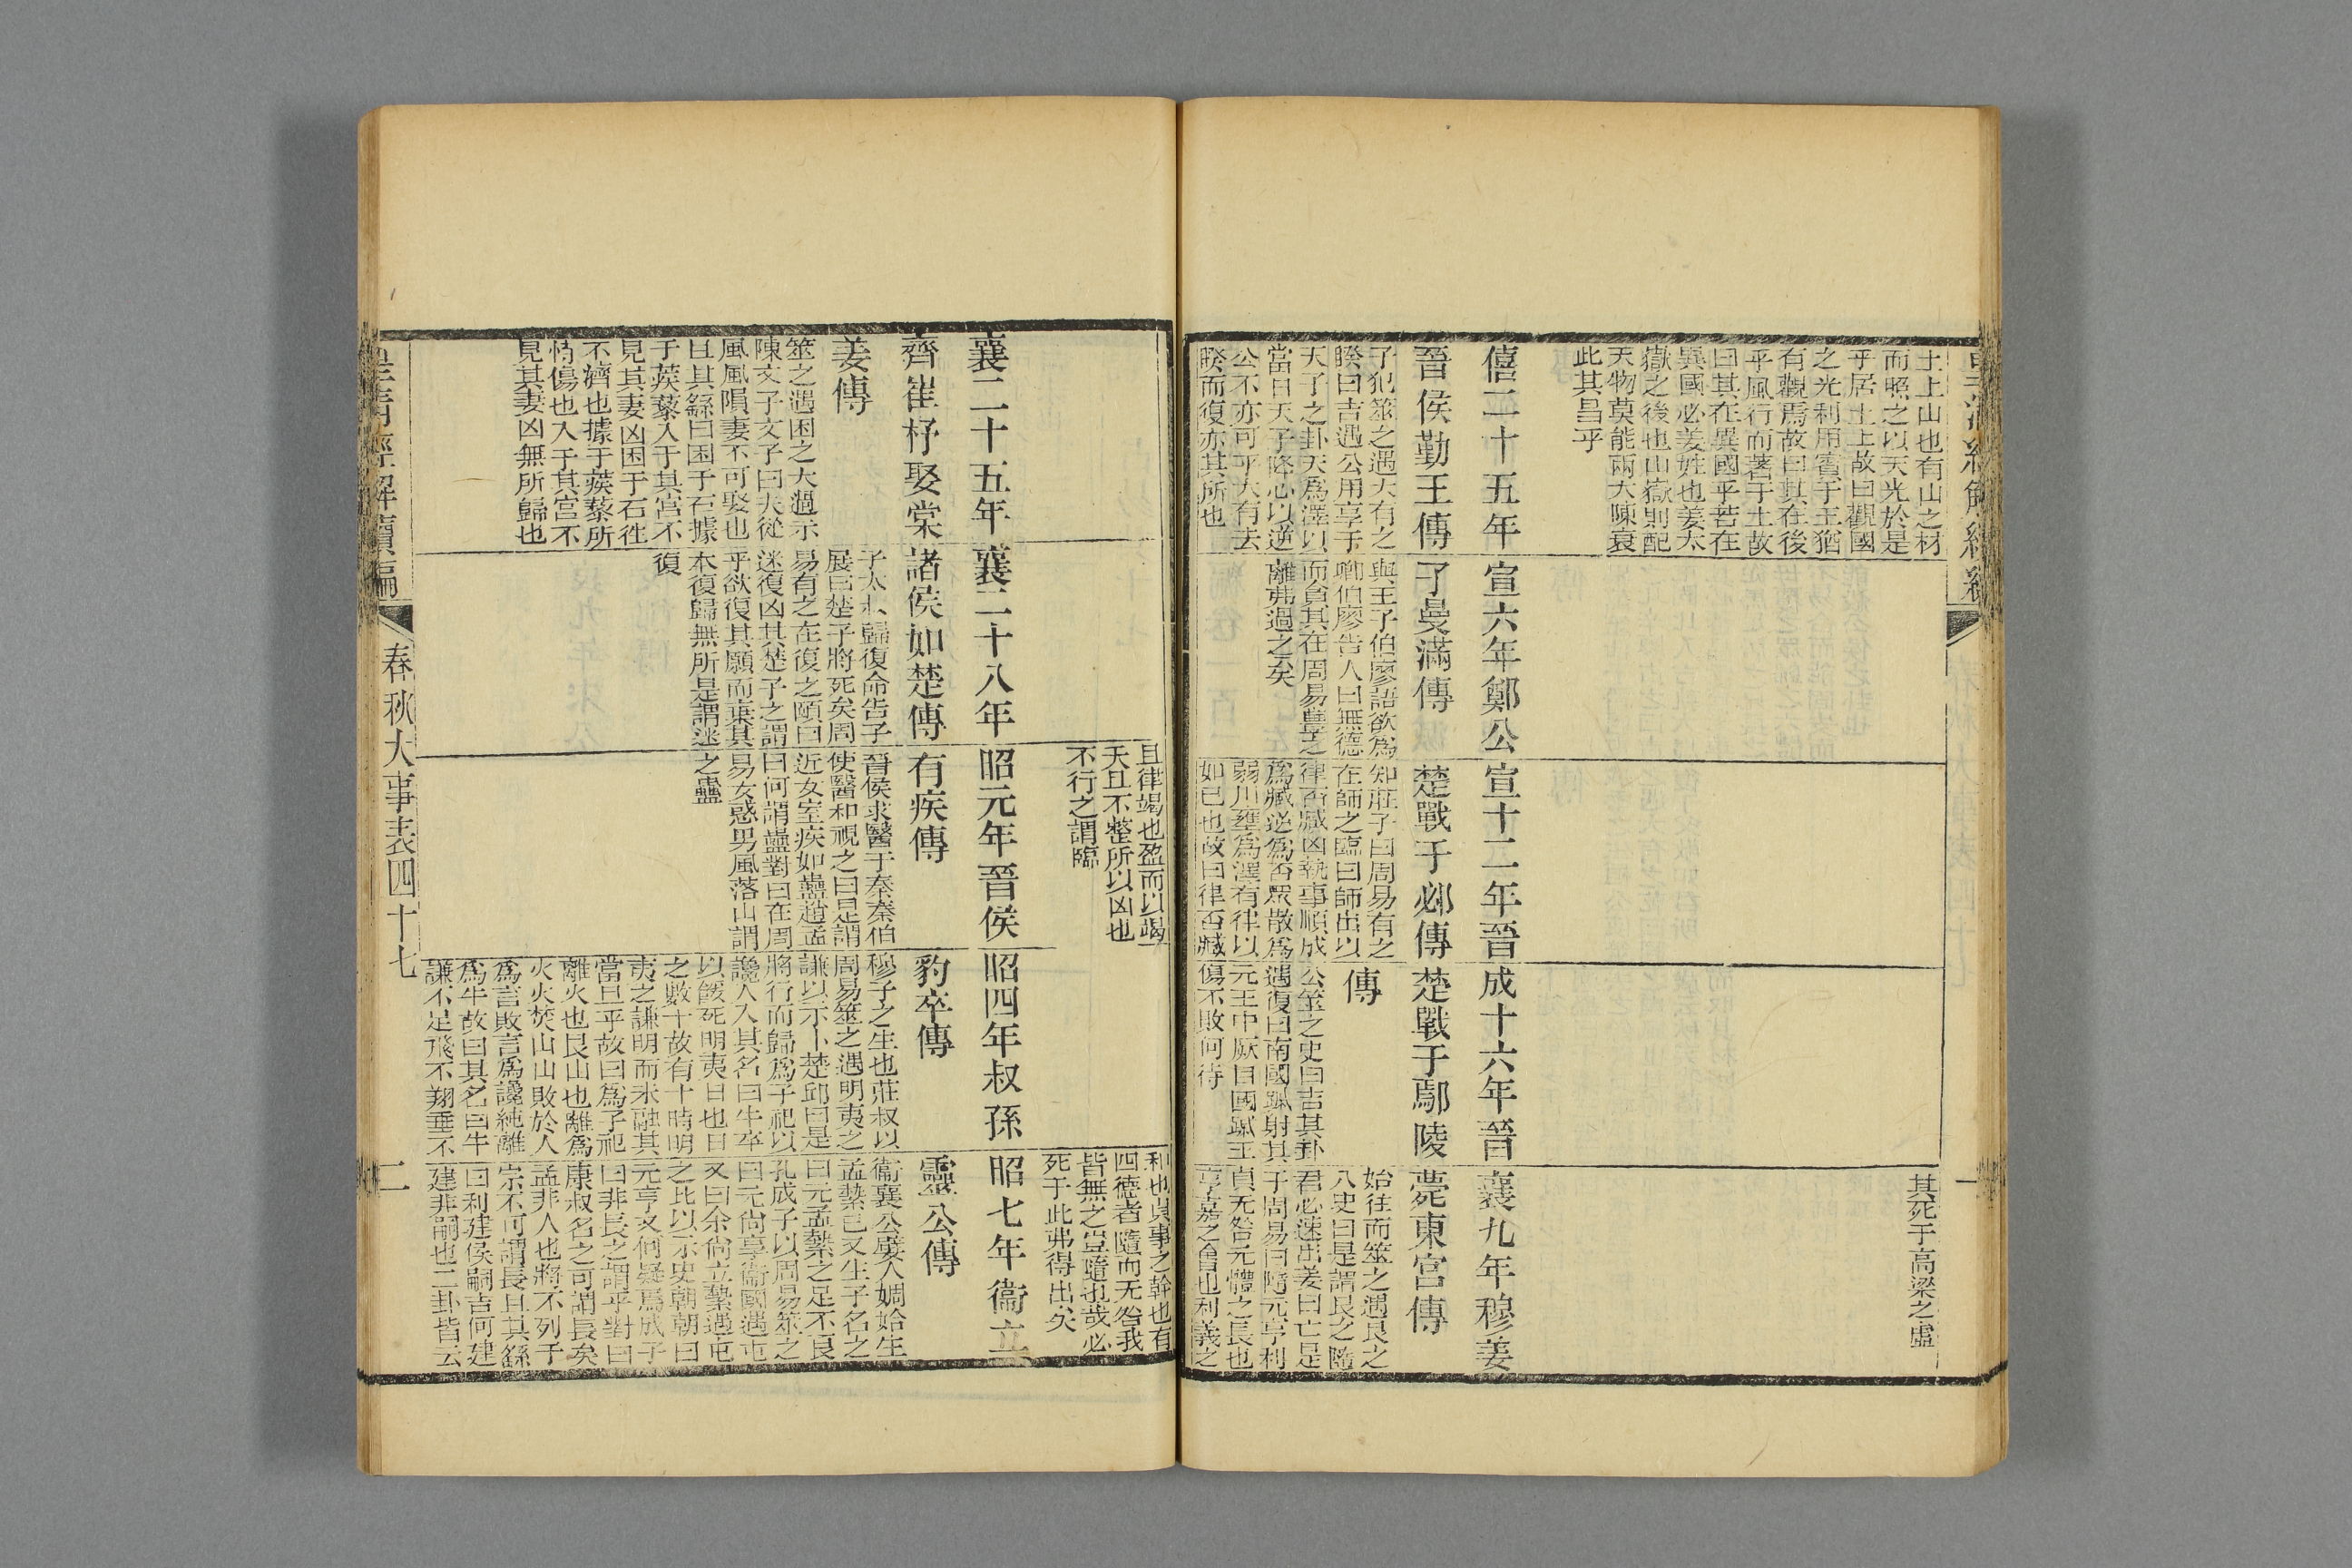 土上山也有山之材
而照之以天光於是
乎居土上故曰觀國
之光利用賓于王猶
有觀焉故曰其在後
乎風行而著于土故
曰其在異國乎若在
異國必姜姓也姜大
嶽之後也山嶽則配
天物莫能兩大陳衰
此其昌乎
其死于高梁之虛
僖二十五年
晉侯勤王傳
子犯筮之遇大有之
睽曰吉遇公用享于
天子之卦天爲澤以
當日天子降心以逆
公不亦可乎大有去
睽而復亦其所也
宣六年鄭公
子曼滿傳
與王子伯廖語欲爲
卿伯廖告人曰無德
而貪其在周易豐之
離弗過之矣
宣十二年晉
楚戰于邲傳
知莊子曰周易有之
在師之臨曰師出以
律否臧凶執事順成
爲臧逆爲否衆散爲
弱川壅爲澤有律以
如己也故曰律否臧
且律竭也盈而以竭
夭且不整所以凶也
不行之謂臨
成十六年晉
楚戰于鄢陵
傳
公筮之史曰吉其卦
遇復曰南國䠞射其
元王中厥目國䠞王
傷不敗何待
襄九年穆姜
薨東宮傳
始往而筮之遇艮之
八史曰是謂艮之隨
君必速出姜曰亡是
于周易曰隨元亨利
貞无咎元體之長也
亨嘉之會也利義之
和也貞事之幹也有
四德者隨而无咎我
皆無之豈隨也哉必
死于此弗得出矣
襄二十五年
齊崔杼娶棠
姜傳
筮之遇困之大過示
陳文子文子曰夫從
風風隕妻不可娶也
且其繇曰困于石據
于蒺藜入于其宮不
見其妻凶困于石往
不濟也據于蒺藜所
恃傷也入于其宮不
見其妻凶無所歸也
襄二十八年
諸侯如楚傳
子太叔歸復命告子
展曰楚子將死矣周
易有之在復之頤曰
迷復凶其楚子之謂
乎欲復其願而棄其
本復歸無所是謂迷
復
昭元年晉侯
有疾傳
晉侯求醫于秦秦伯
使醫和視之曰是謂
近女室疾如蠱趙孟
曰何謂蠱對曰在周
易女惑男風落山謂
之蠱
昭四年叔孫
豹卒傳
穆子之生也莊叔以
周易筮之遇明夷之
謙以示卜楚邱曰是
將行而歸爲子祀以
讒人入其名曰牛卒
以餒死明夷日也日
之數十故有十時明
夷之謙明而未融其
當旦乎故曰爲子祀
離火也艮山也離爲
火火焚山山敗於人
爲言敗言爲讒純離
爲牛故曰其名曰牛
謙不足飛不翔垂不
昭七年衞立
靈公傳
衞襄公嬖人婤姶生
孟縶己又生子名之
曰元孟縶之足不良
孔成子以周易筮之
曰元尚享衞國遇屯
又曰余尚立縶遇屯
之比以示史朝朝曰
元亨又何疑焉成子
曰非長之謂乎對曰
康叔名之可謂長矣
孟非人也將不列于
宗不可謂長且其繇
曰利建侯嗣吉何建
建非嗣也二卦皆云
皇清經解續編
春秋大事表四十七
二